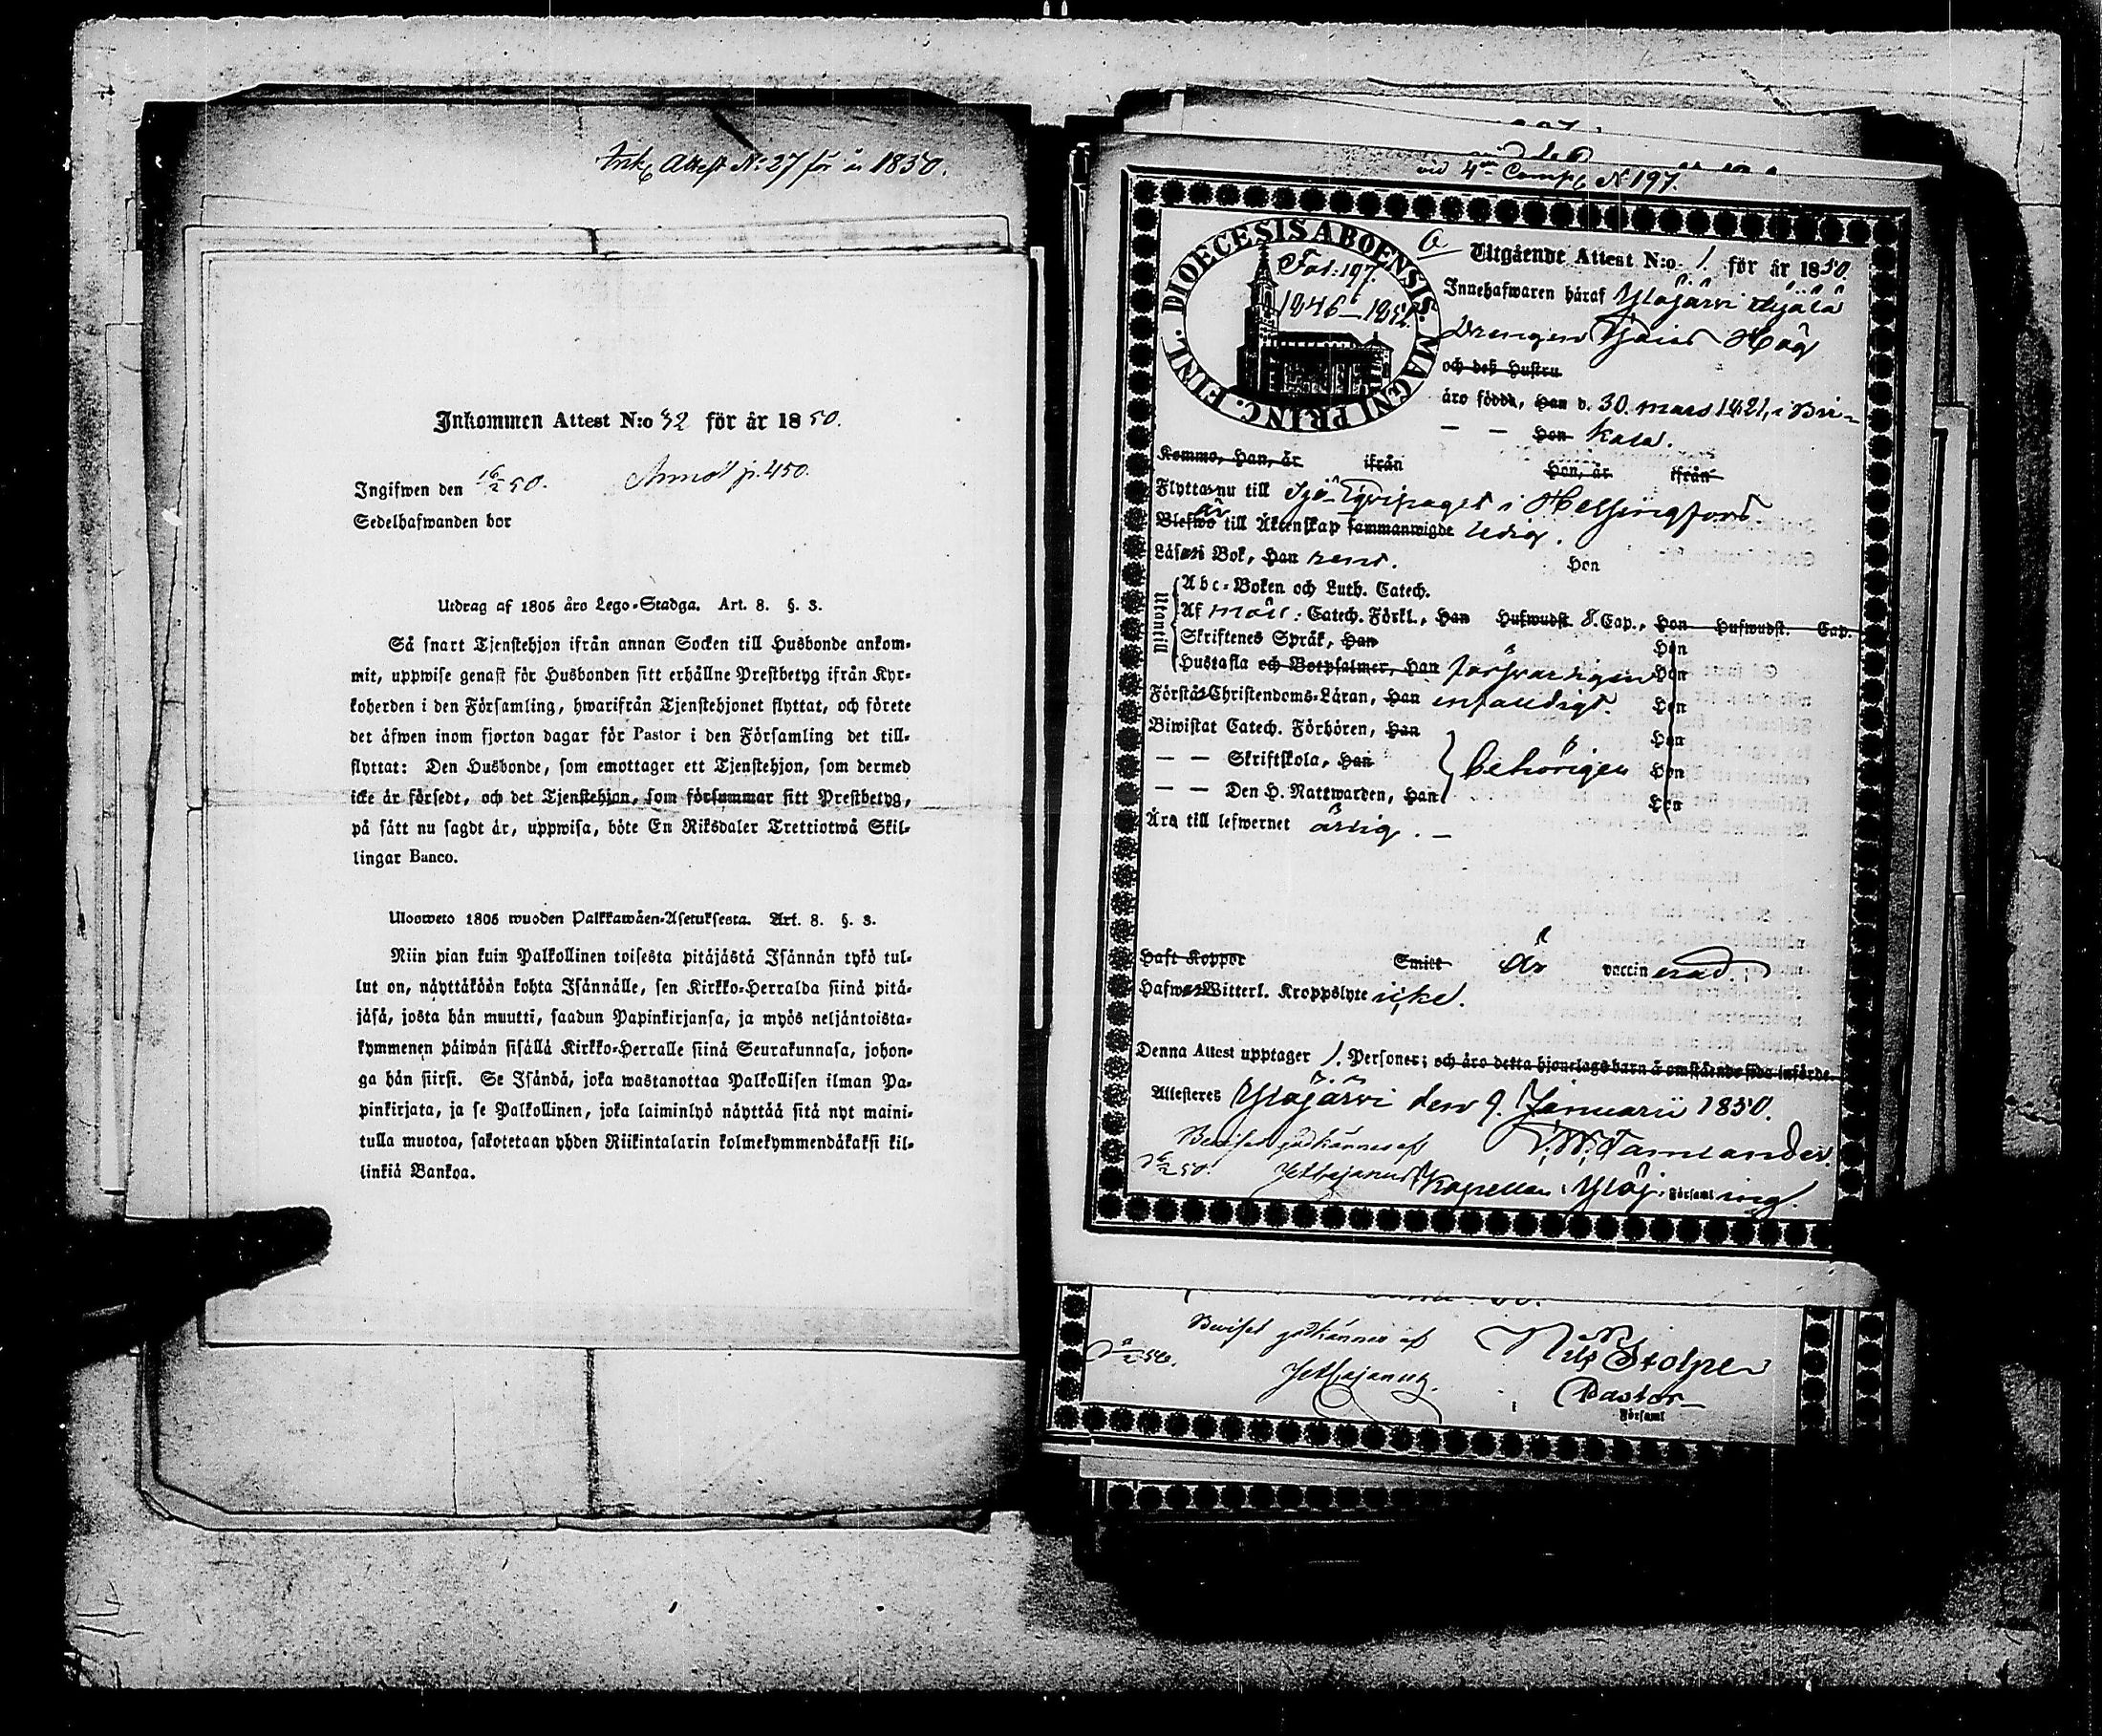 Ink. Attest No: 27 för år 1850.
Inkommen Attest N:o 32 för år 1850.
Ingifwen den 16/2 50. p. 450.
Sedelhafwanden bor
Utdrag af 1805 års Lego-Stadga. Art. 8. §. 3.
Så snart Tjenstehjon ifrån annan Socken till Husbonde ankom-
mit, uppwise genast för Husbonden sitt erhållne Prestbetyg ifrån Kyr-
koherden i den Församling, hwarifrån Tjenstehjonet flyttat, och förete
det äfwen inom fjorton dagar för Pastor i den Församling det till-
flyttat: Den Husbonde, som emottager ett Tjenstehjon, som dermed
icke är försedt, och det Tjenstehjon, som försummar sitt Prestbetyg,
på sätt nu sagdt är, uppwisa, böte En Riksdaler Trettiotwå Skil-
lingar Banco.
Ulosweto 1805 wuoden Palkkawäen-Asetuksesta. Art. 8. §. 3.
Niin pian kuin Palkollinen toisesta pitäjästä Isännän tykö tul-
lut on, näyttäköön kohta Isännälle, sen Kirkko-Herralda siinä pitä-
jäsä, josta hän muutti, saadun Papinkirjansa, ja myös neljäntoista-
kymmenen päiwän sisällä Kirkko-Herralle siinä Seurakunnasa, johon-
ga hän siirsi. Se Isändä, joka wastanottaa Palkollisen ilman Pa-
pinkirjata, ja se Palkollinen, joka laiminlyö näyttää sitä nyt maini-
tulla muotoa, sakotetaan yhden Riikintalarin kolmekymmendäkaksi kil-
linkiä Bankoa.
vid 4de Comp. N 197.
DIOECESIS ABOENSIS. MAGNI PRINC. FINL.
Fol: 197.
1846–1852.
Utgående Attest N:o 1. för år 1850.
Innehafwaren häraf Ylöjärvi
Drengen Höög
och deß Hustru
äro födde, Han d. 30. mars 1821, i Bir-
— — Hon kala.
Kommo, Han, år ifrån Hon, år ifrån
Flytta nu till Sjö Equipaget i Helsingfors
är
Blefwo till Äktenskap sammanwigde ledig.
Läsa i Bok, Han rent. Hon
Utantill
Abc-Boken och Luth. Catech.
Af Catech. Förkl., Han Hufwudst. 8. Cap., Hon Hufwudst. Cap.
Skriftenes Språk, Han Hon
Hustafla och Botpsalmer, Han försvarligen Hon
Förstå Christendoms-Läran, Han enfaldigt. Hon
Biwistat Catech. Förhören, Han Hon
— — Skriftskola, Han behörigen Hon
— — Den H. Nattwarden, Han Hon
Äro till lefwernet ärlig. —
Haft Koppor Smitt Är vaccinerad.
Hafwa Witterl. Kroppslyte icke.
Denna Attest upptager 1. Personer; och äro detta hjonelags barn å omstående sida införde.
Attesteres Ylöjärvi den 9. Januarii 1850.
Beviset godkännes af
16/2 50. Kapellan i Ylöj. Församl ing.
Beviset godkännes af
Nils Stolpe
Pastor
i Församl